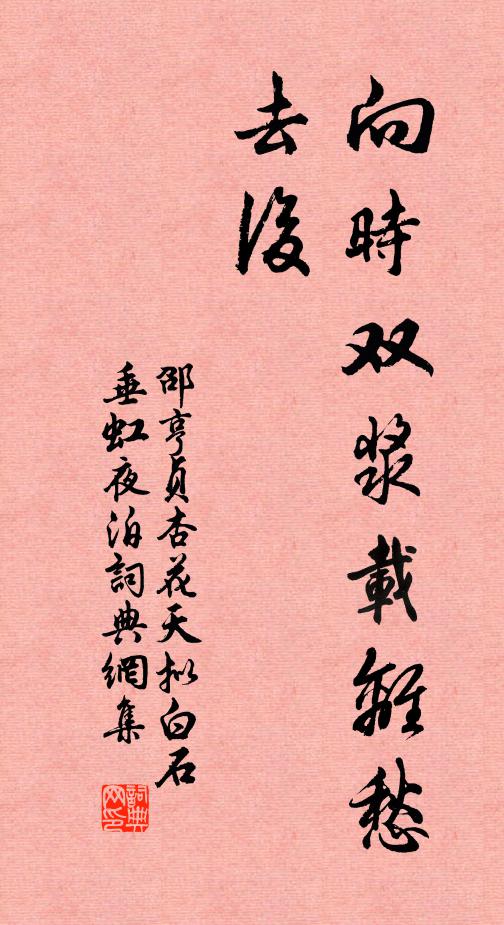 向時双漿載離愁
去後
邵亨貞杏花天拟白石
垂虹夜泊詞典網集
詞典网印